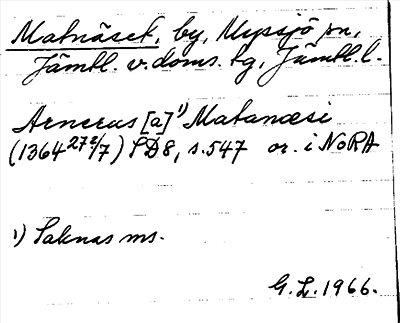 Matnäset, by, Myssjö sn,
Jämtl. v. doms. tg, Jämtl. l.
Arnerus [a]¹⁾ Matanæsi
(1364 27/7) SD 8, s. 547 or. i NoRA
¹⁾ Saknas ms.
G. L. 1966.